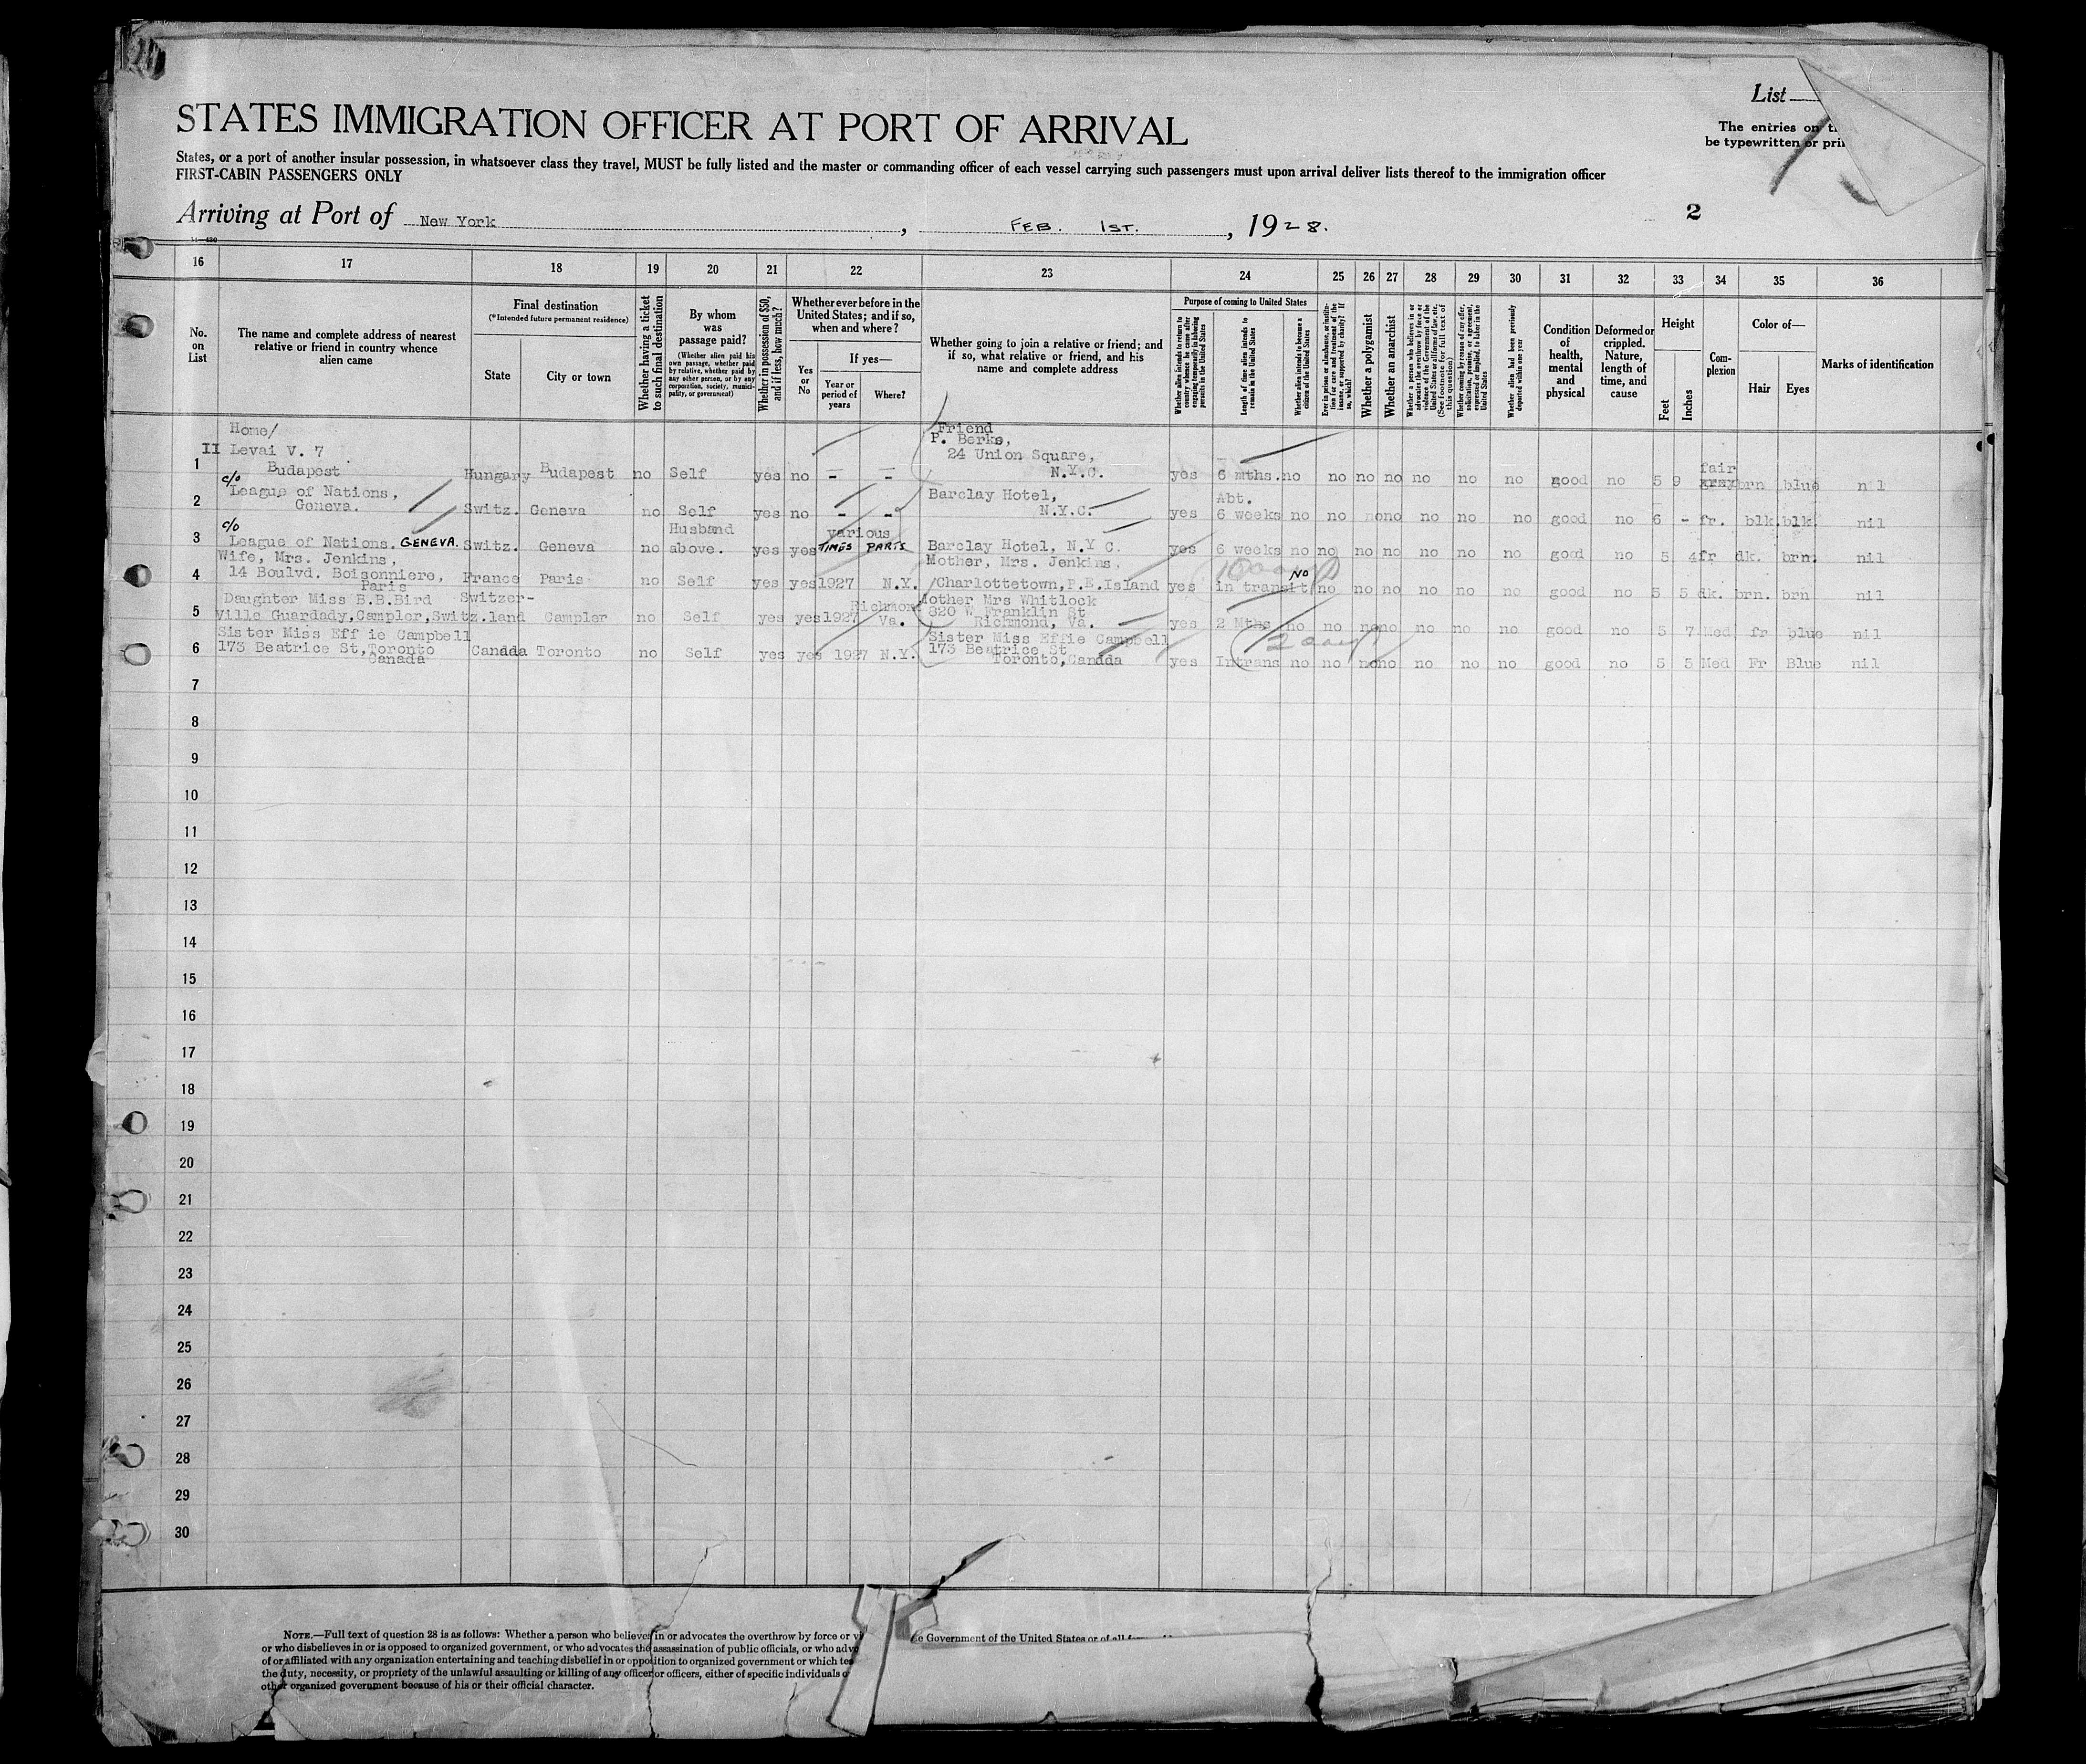 List
STATES IMMIGRATION OFFICER AT PORT OF ARRIVAL
The entries on
be typewritten or
States, or a port of another insular possession, in whatsoever class they travel, MUST be fully listed and the master or commanding officer of each vessel carrying such passengers must upon arrival deliver lists thereof to the immigration officer
FIRST-CABIN PASSENGERS ONLY
Arriving at Port of New York, FEB. 1ST., 1928.
2
16 17 18 19 20 21 22 23 24 25 26 27 28 29 30 31 32 33 34 35 36
No. on List
The name and complete address of nearest relative or friend in country whence alien came
Final destination
(*Intended future permanent residence)
State
City or town
Whether having a ticket to such final destination
By whom was passage paid?
(Whether alien paid his own passage, whether paid by relative, whether paid by any other person, or by any corporation, society, municipality, or government)
Whether in possession of $50, and if less, how much?
Whether ever before in the United States; and if so, when and where?
Yes or No
If yes—
Year or period of years
Where?
Whether going to join a relative or friend; and if so, what relative or friend, and his name and complete address
Purpose of coming to United States
Whether alien intends to return to country whence he came after engaging temporarily in laboring pursuits in the United States
Length of time alien intends to remain in the United States
Whether alien intends to become a citizen of the United States
Ever in prison or almshouse, or institution for care and treatment of the insane, or supported by charity? If so, which?
Whether a polygamist
Whether an anarchist
Whether a person who believes in or advocates the overthrow by force or violence of the Government of the United States or all forms of law, etc. (See footnote for full text of this question)
Whether coming by reason of any offer, solicitation, promise, or agreement, expressed or implied, to labor in the United States
Whether alien had been previously deported within one year
Condition of health, mental and physical
Deformed or crippled. Nature, length of time, and cause
Height
Feet
Inches
Complexion
Color of—
Hair
Eyes
Marks of identification
1 Home/ II Levai V. 7 Budapest Hungary Budapest no Self yes no – – Friend P. Berks, 24 Union Square, N.Y.C. yes 6 mths. no no no no no no no good no 5 9 fair brn blue nil
2 c/o League of Nations, Geneva. Switz. Geneva no Self yes no - - Barclay Hotel, N.Y.C. yes Abt. 6 weeks no no no no no no no good no 6 - fr. blk. blk. nil
3 c/o League of Nations. GENEVA. Switz. Geneva no Husband above. yes yes various TIMES PARTS Barclay Hotel, N.Y C. yes 6 weeks no no no no no no no good no 5 4 fr dk. brn. nil
4 Wife, Mrs. Jenkins, 14 Boulvd. Boisonniere, Paris France Paris no Self yes yes 1927 N.Y. Mother, Mrs. Jenkins, /Charlottetown, P.E.Island yes in transit NO no no no no no no good no 5 5 dk. brn. brn nil
5 Daughter Miss B.B.Bird Ville Guardady, Campler, Switz. Switzer-land Campler no Self yes yes 1927 Richmond Va. Mother Mrs Whitlock 820 W Franklin St Richmond, Va. yes 2 Mths no no no no no no no good no 5 7 Med fr blue nil
6 Sister Miss Eff ie Campbell 173 Beatrice St, Toronto Canada Canada Toronto no Self yes yes 1927 N.Y. Sister Miss Effie Campbell 173 Beatrice St Toronto, Canada yes Intrans no no no no no no no good no 5 5 Med Fr Blue nil
7
8
9
10
11
12
13
14
15
16
17
18
19
20
21
22
23
24
25
26
27
28
29
30
NOTE.—Full text of question 28 is as follows: Whether a person who believes in or advocates the overthrow by force or
Government of the United States or of all
or who disbelieves in or is opposed to organized government, or who advocates the assassination of public officials, or who
of or affiliated with any organization entertaining and teaching disbelief in or opposition to organized government or which
the duty, necessity, or propriety of the unlawful assaulting or killing of any officer or officers, either of specific individuals
other organized government because of his or their official character.